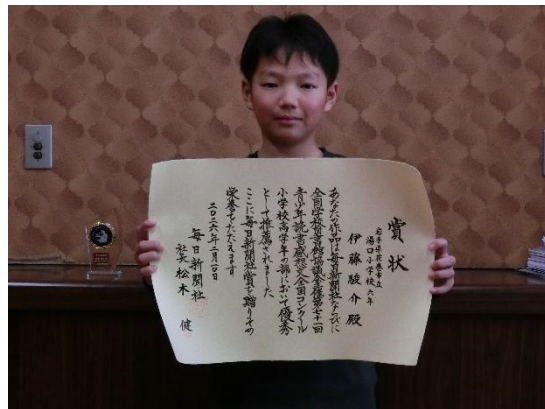 賞状
岩手県花巻市立
湯口小学校 六年
伊藤駿介 殿
あなたの作品は毎日新聞社ならびに
全国学校図書館協議会主催第七十一回
青少年読書感想文全国コンクール
小学校高学年の部において優秀
として推薦されました
ここに毎日新聞社賞を贈りその
栄誉をたたえます
二〇二六年二月二〇日
毎日新聞社
社長 松木 健